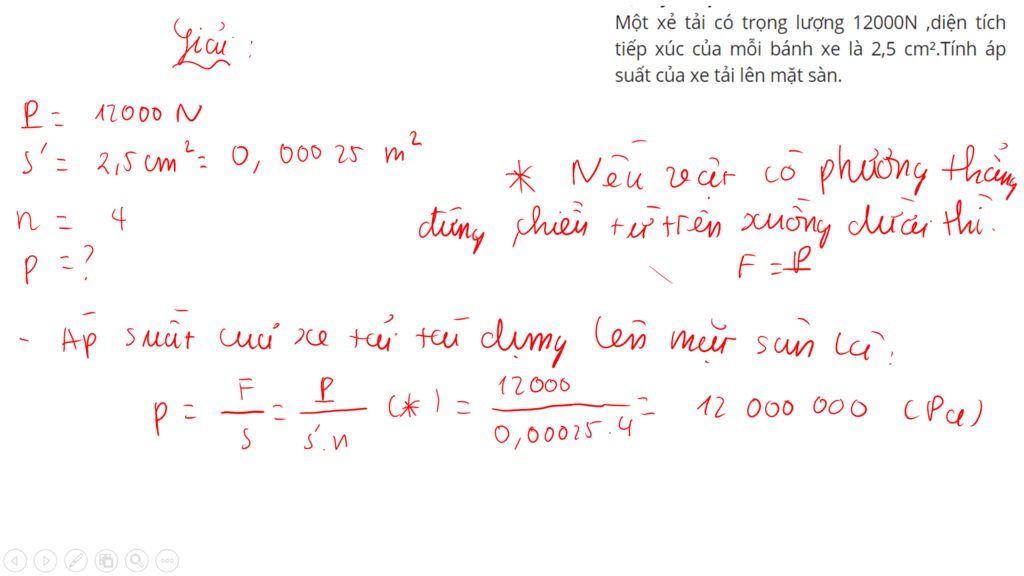 Một xẻ tải có trọng lượng 12000N ,diện tích
tiếp xúc của mỗi bánh xe là 2,5 cm².Tính áp
suất của xe tải lên mặt sàn.
Giải :
P = 12000 N
S' = 2,5 cm² = 0, 00025 m²
n = 4
p = ?
* Nếu vật có phương thẳng
đứng chiều từ trên xuống dưới thì:
F = P
- Áp suất của xe tải tác dụng lên mặt sàn là:
p = F/S = P/S'.n (*) = 12000/0,00025.4 = 12 000 000 (Pa)